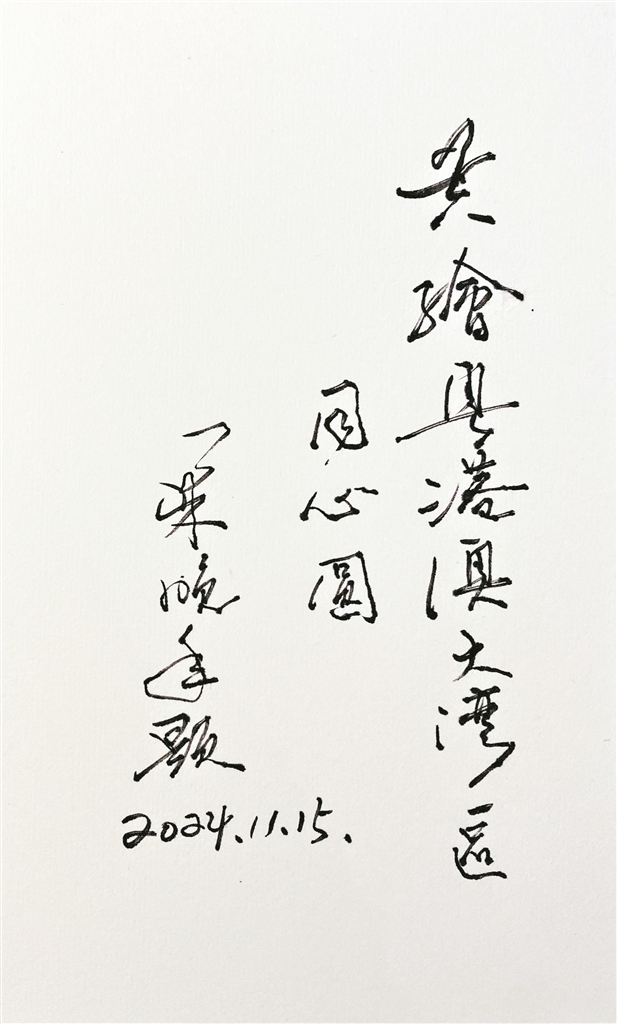 共繪粵港澳大灣區
同心圓
年題
2024.11.15.